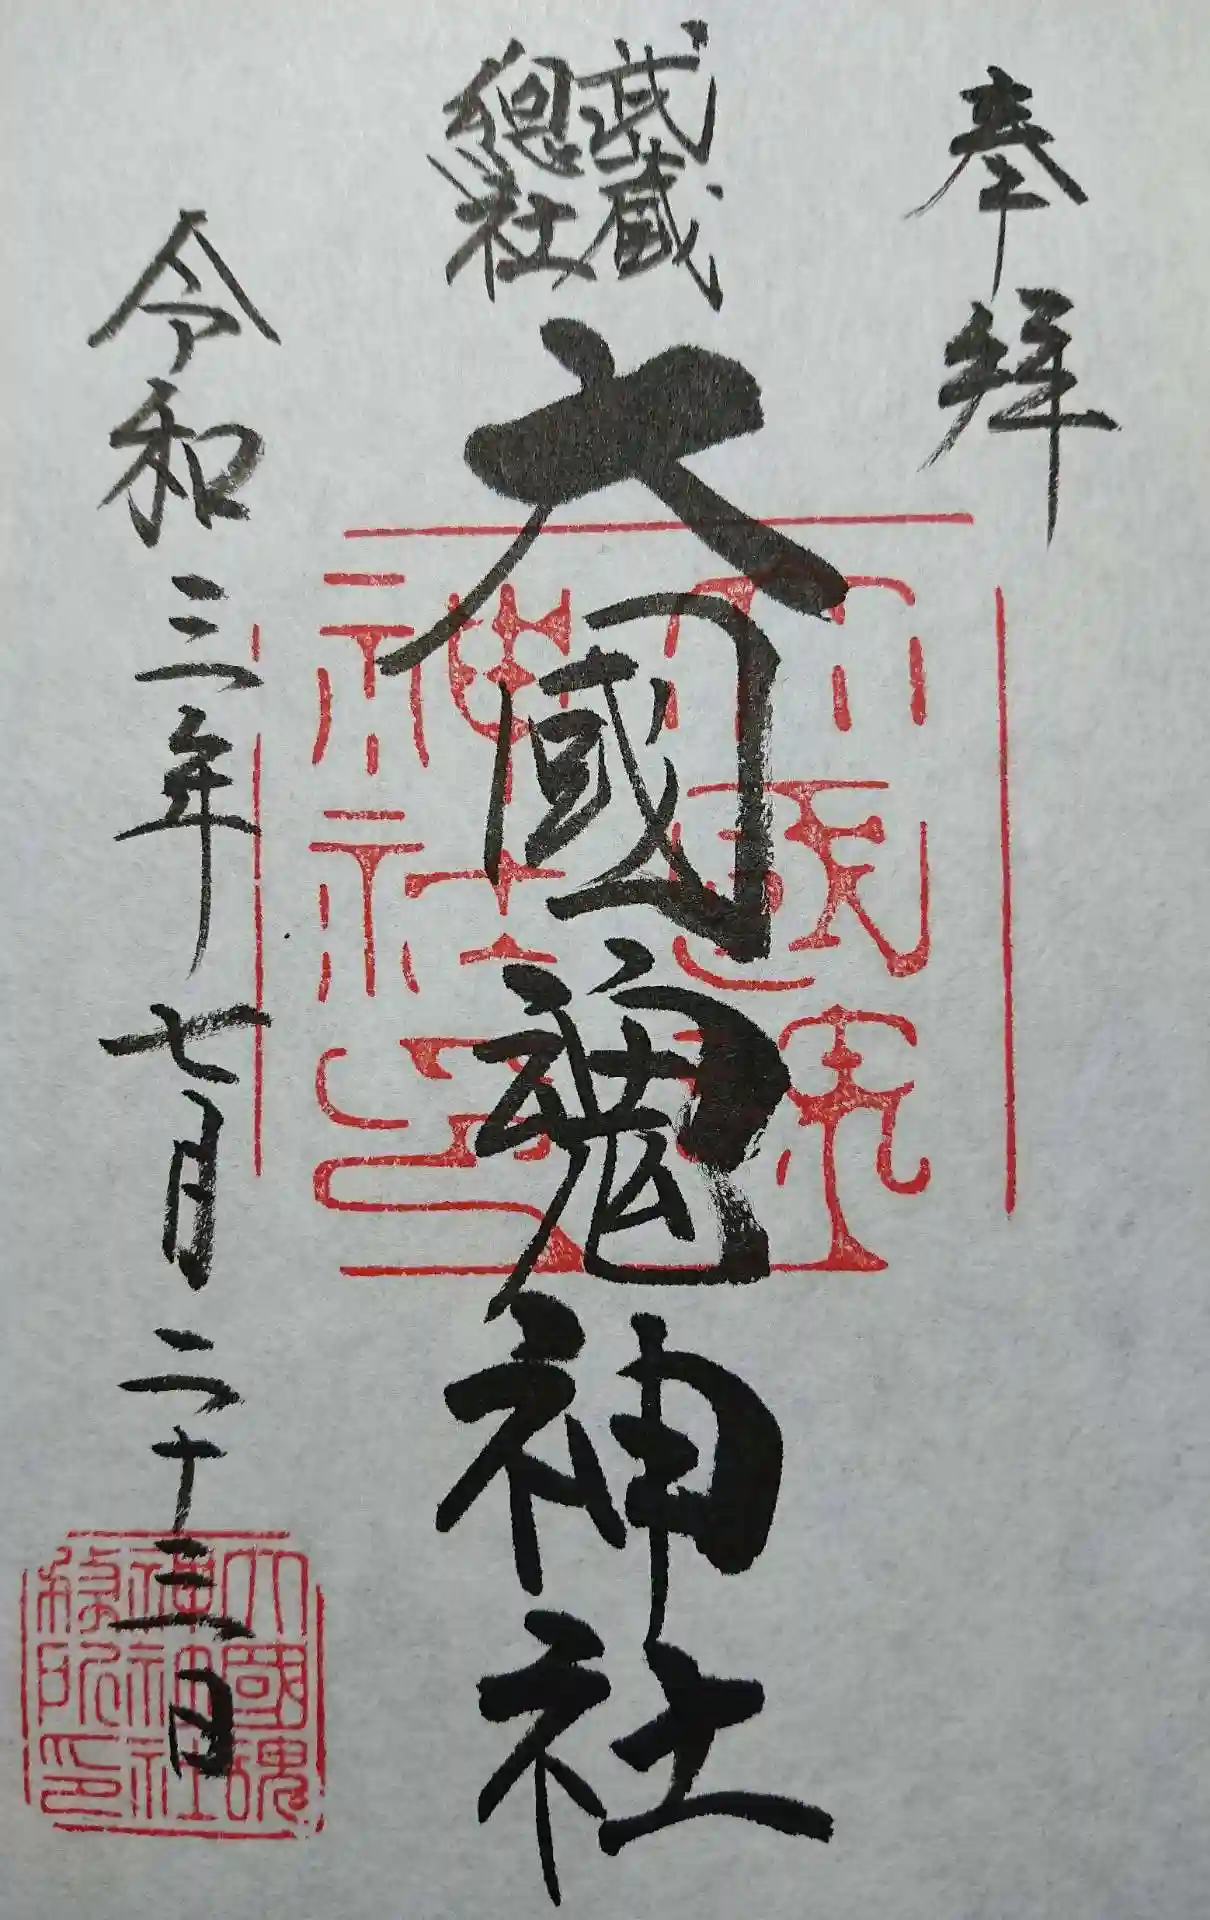 奉拝
武蔵
總社
大國魂神社
令和三年七月二十三日
大國魂
神社之印
大國魂
神社
務所印